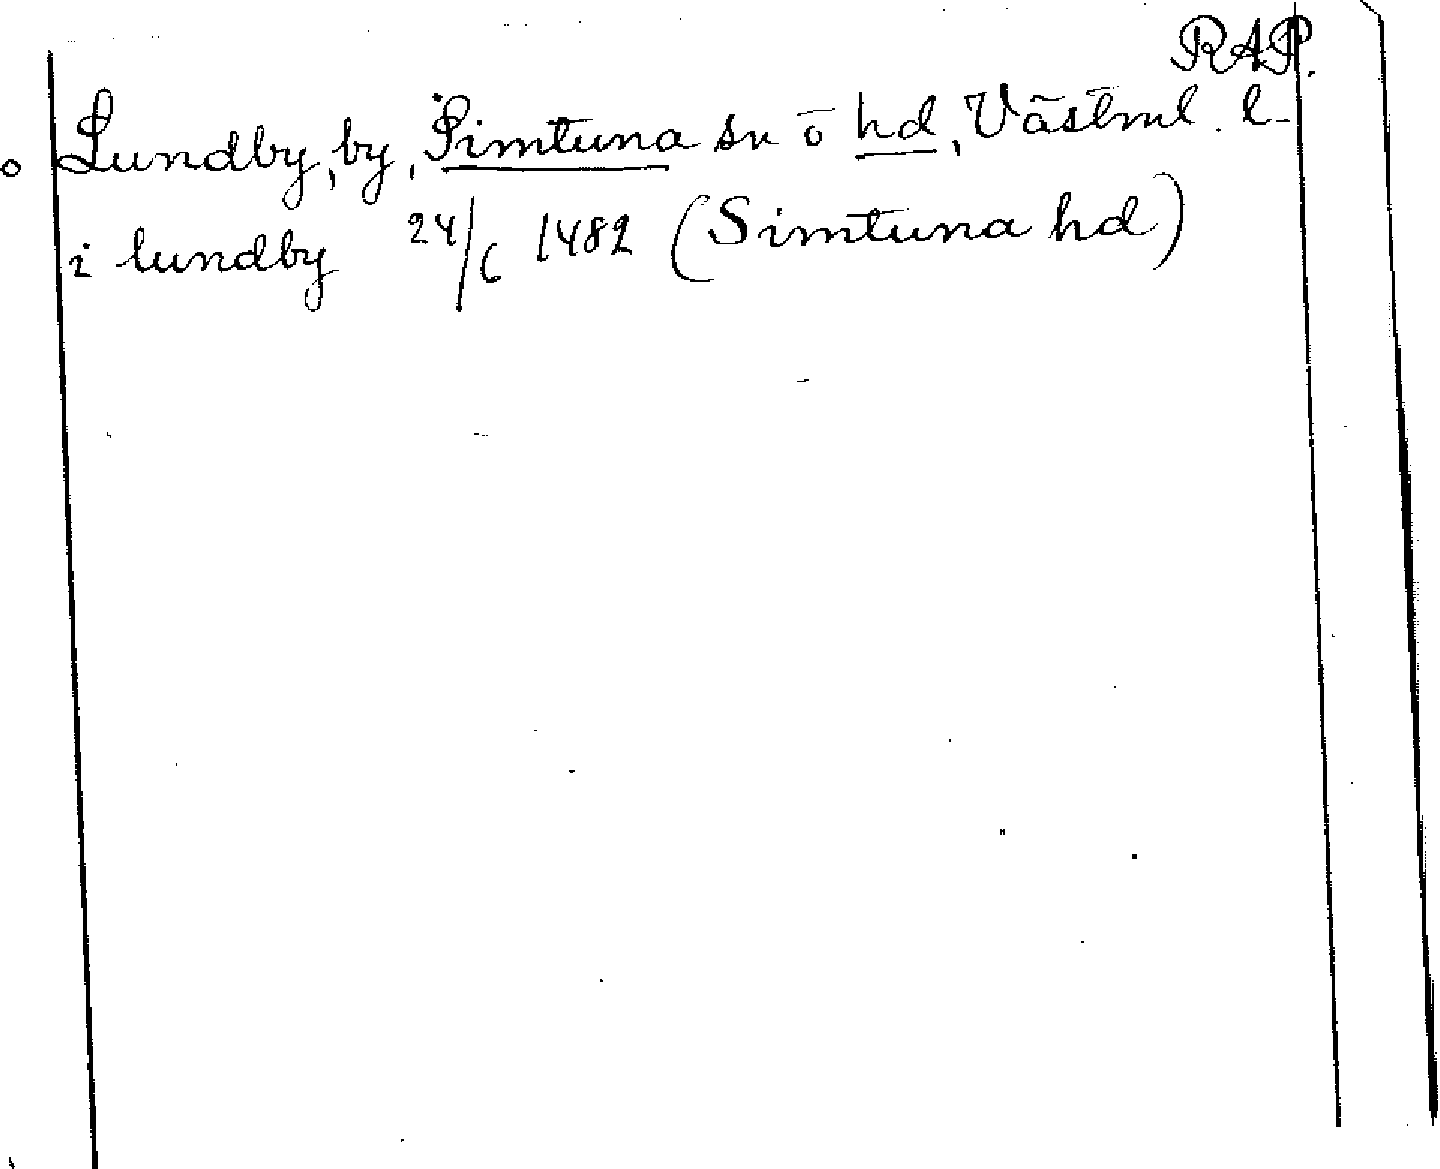 RAP.
Lundby, by, Simtuna sn ō hd, Västml. l.
i lundby 24/6 1482 (Simtuna hd)